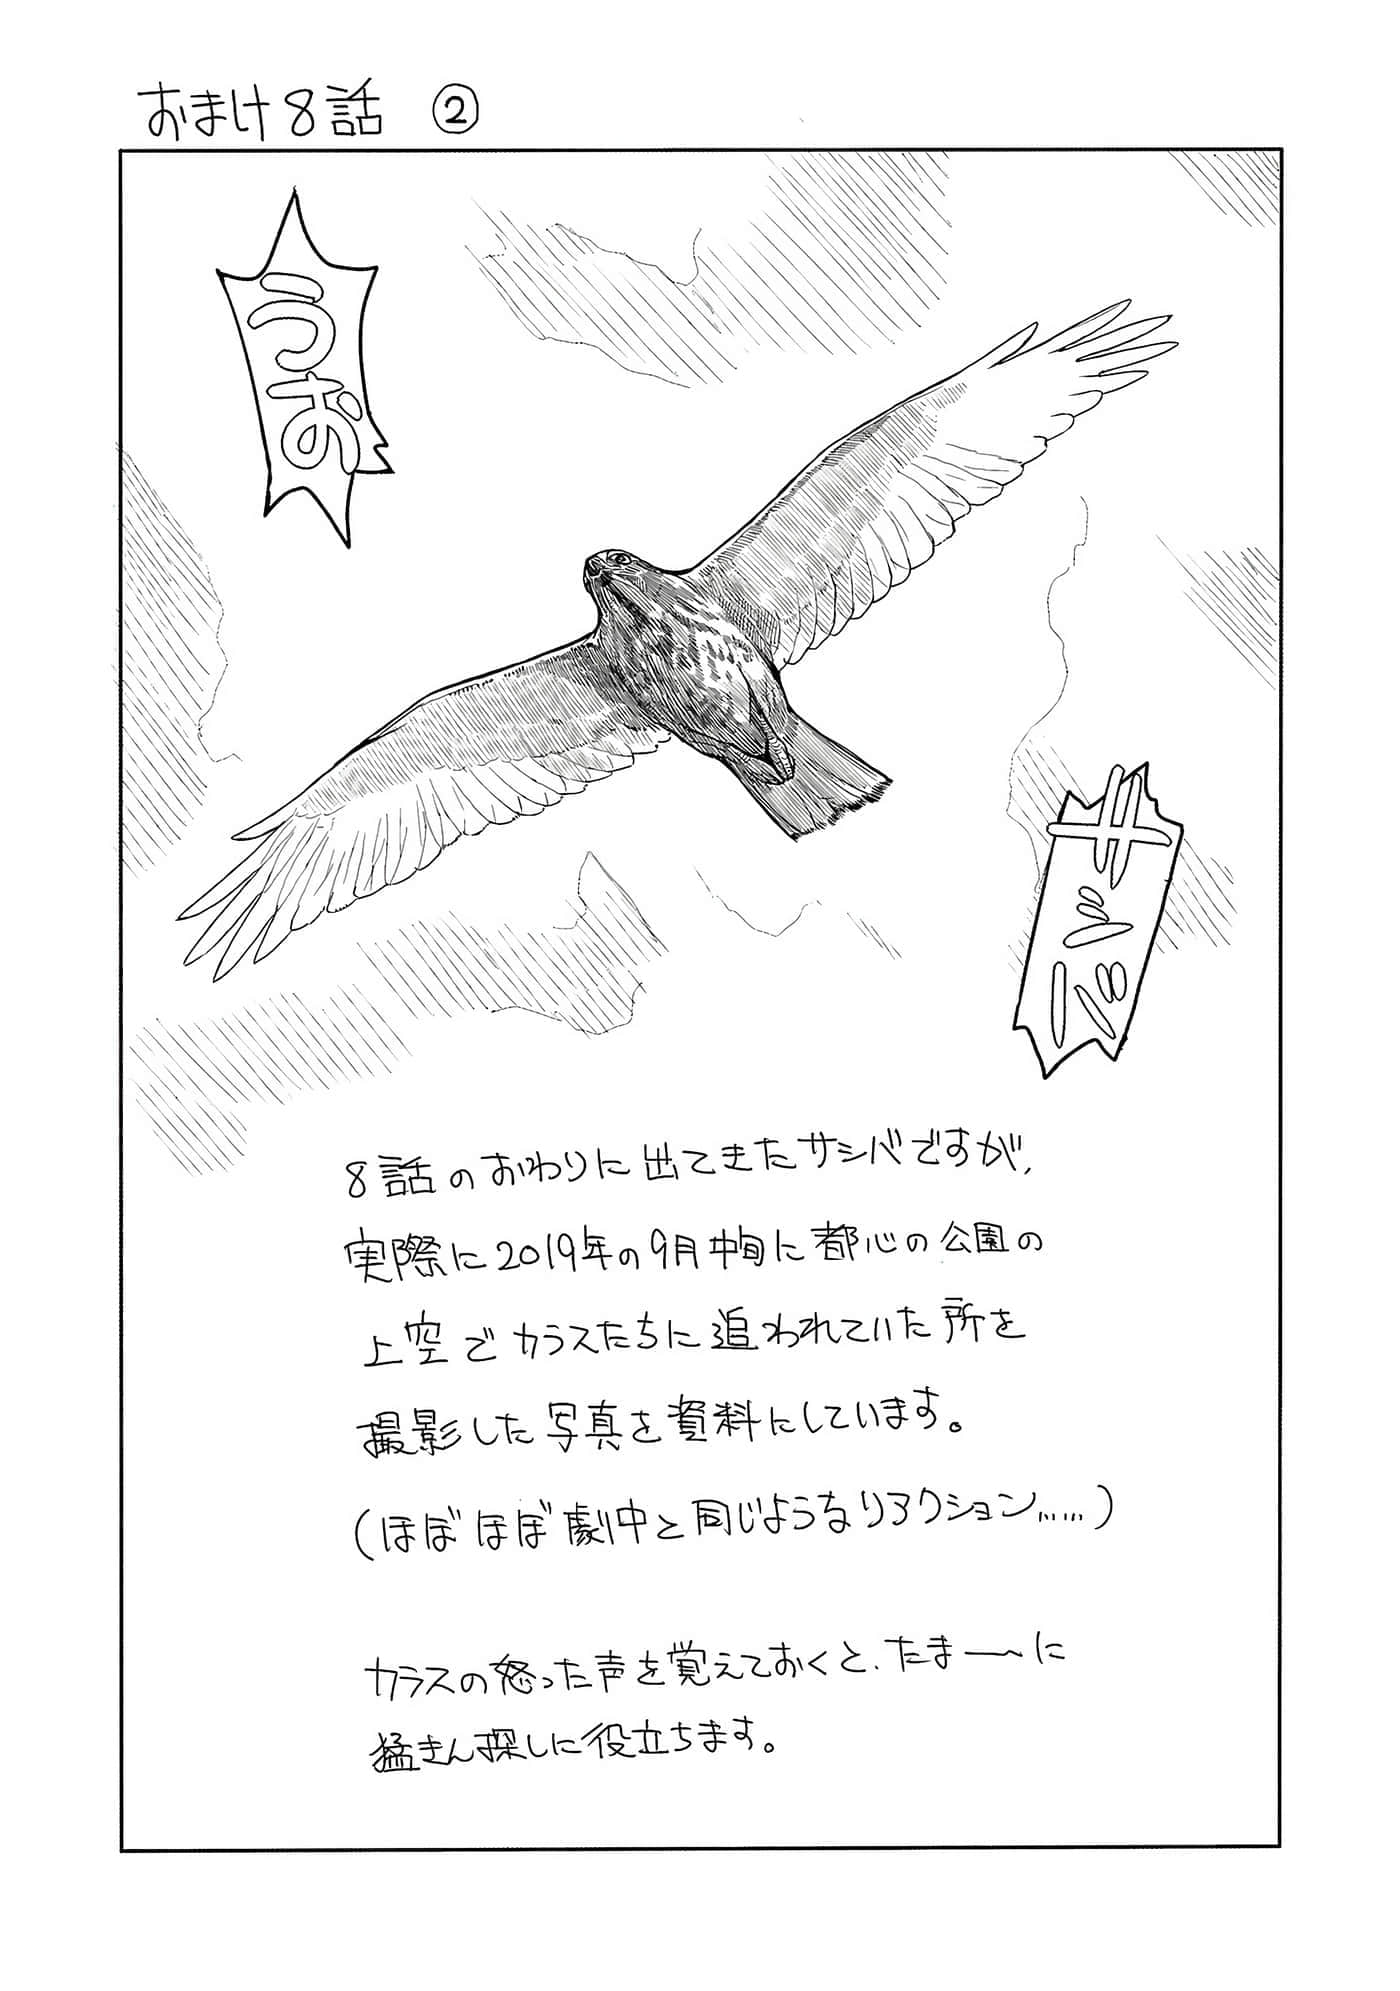 おまけ8話 ②
うお
サシバ
8話のおわりに出てきたサシバですが、
実際に2019年の9月中旬に都心の公園の
上空でカラスたちに追われていた所を
撮影した写真を資料にしています。
(ほぼほぼ劇中と同じようなリアクション……)
カラスの怒った声を覚えておくと、たま〜に
猛きん探しに役立ちます。